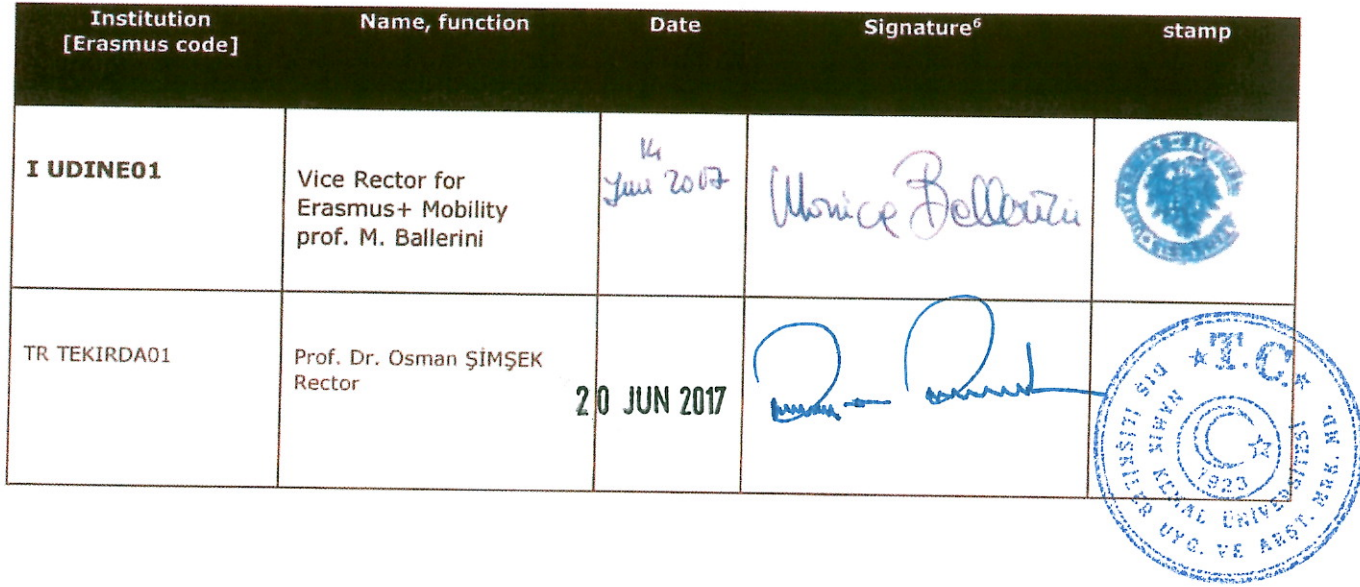 Institution
[Erasmus code]
Name, function
Date
Signature⁶
stamp
I UDINE01
Vice Rector for
Erasmus+ Mobility
prof. M. Ballerini
14
2017
Monica Ballerini
TR TEKIRDA01
Prof. Dr. Osman ŞİMŞEK
Rector
20 JUN 2017
T.C.
NAMIK KEMAL ÜNİVERSİTESİ
DIŞ İLİŞKİLER UYG. VE ARŞT. MRK. MD.
1923